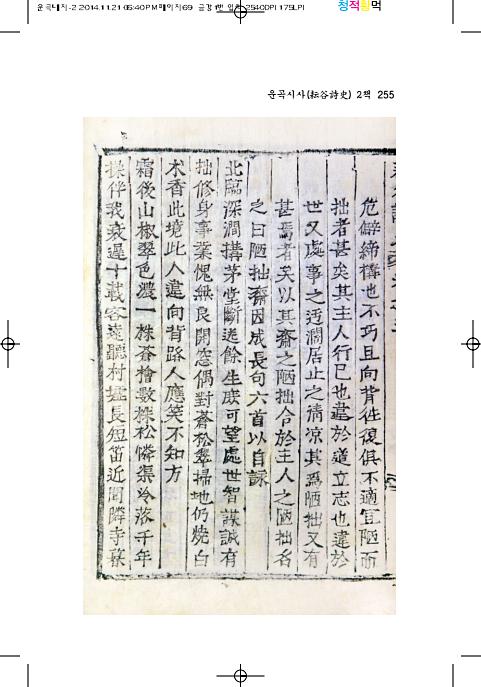 운곡내지-2 2014.11.21 05:40 PM 페이지69 2540DPI 175LPI
청적황먹
운곡시사(耘谷詩史) 2책 255
危僻締構也不巧且向背往復俱不適宜陋而
拙者甚矣其主人行已也違於道立志也違於
世又處事之迃濶居止之清凉其爲陋拙又有
甚焉者矣以其齋之陋拙合於主人之陋拙名
之曰陋拙齋因成長句六首以自詠
北臨深澗搆茅堂斷送餘生庶可望處世智謀誠有
拙修身事業愧無良開窓偶對蒼松翠掃地仍燒白
朮香此境此人違向背路人應笑不知方
霜後山椒翠色濃一株蒼檜數株松憐渠冷落千年
操伴我衰遲十載容遠聽村墟長短笛近聞隣寺暮